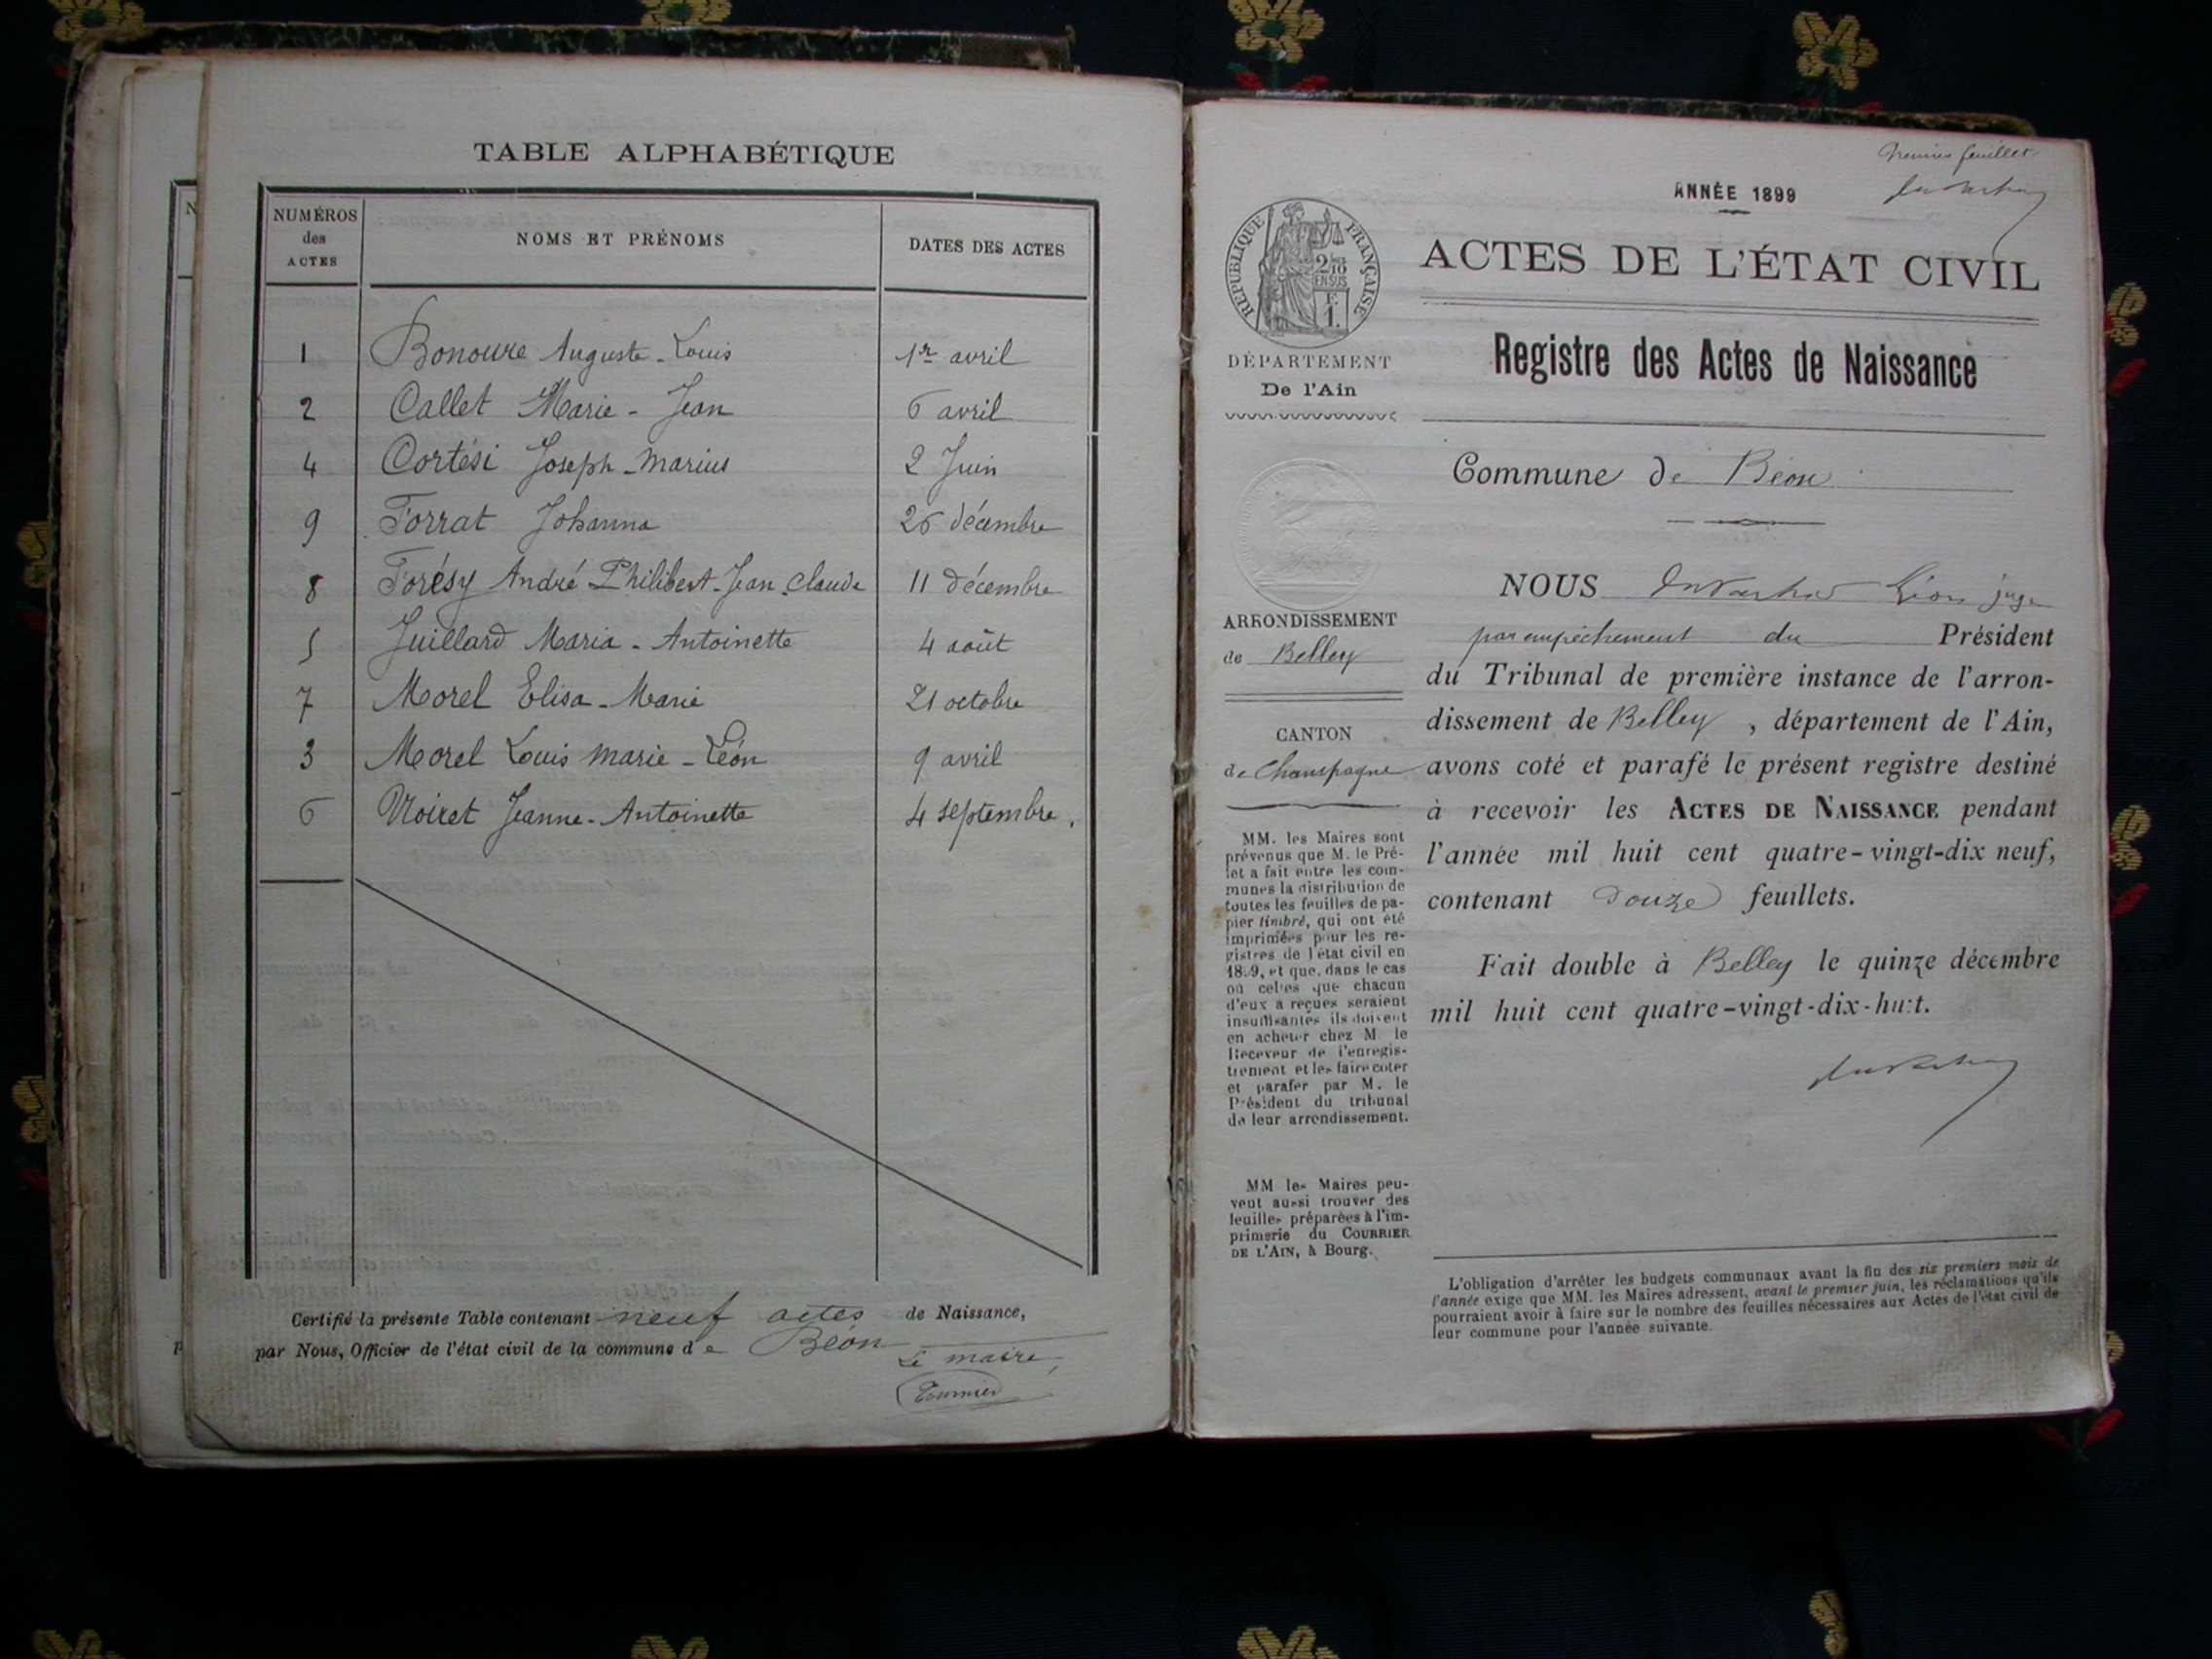 TABLE ALPHABÉTIQUE
NUMÉROS
des
ACTES
NOMS ET PRÉNOMS
DATES DES ACTES
1 Bonoure Auguste-Louis 1er avril
2 Callet Marie-Jean 6 avril
4 Cortési Joseph-Marius 2 Juin
9 Forrat Johanna 26 décembre
8 Forésy André Philibert-Jean-Claude 11 décembre
5 Juillard Maria-Antoinette 4 août
7 Morel Elisa-Marie 21 octobre
3 Morel Louis Marie-Léon 9 avril
6 Noiret Jeanne-Antoinette 4 septembre.
Certifié la présente Table contenant neuf actes de Naissance,
par Nous, Officier de l'état civil de la commune de Béon
Le maire,
Premier feuillet
ANNÉE 1899
RÉPUBLIQUE FRANÇAISE
2/10
EN SUS
F.
1.
ACTES DE L'ÉTAT CIVIL
Registre des Actes de Naissance
DÉPARTEMENT
De l'Ain
Commune de Béon
ARRONDISSEMENT
de Belley
CANTON
de Champagne
MM. les Maires sont
prévenus que M. le Pré-
fet a fait entre les com-
munes la distribution de
toutes les feuilles de pa-
pier timbré, qui ont été
imprimées pour les re-
gistres de l'état civil en
1899, et que, dans le cas
où celles que chacun
d'eux a reçues seraient
insuffisantes ils doivent
en acheter chez M. le
Receveur de l'enregis-
trement et les faire coter
et parafer par M. le
Président du tribunal
de leur arrondissement.
MM les Maires peu-
vent aussi trouver des
feuilles préparées à l'im-
primerie du COURRIER
DE L'AIN, à Bourg.
NOUS Léon juge
par empêchement du Président
du Tribunal de première instance de l'arron-
dissement de Belley, département de l'Ain,
avons coté et parafé le présent registre destiné
à recevoir les ACTES DE NAISSANCE pendant
l'année mil huit cent quatre-vingt-dix neuf,
contenant douze feuillets.
Fait double à Belley le quinze décembre
mil huit cent quatre-vingt-dix-huit.
L'obligation d'arrêter les budgets communaux avant la fin des six premiers mois de
l'année exige que MM. les Maires adressent, avant le premier juin, les réclamations qu'ils
pourraient avoir à faire sur le nombre des feuilles nécessaires aux Actes de l'état civil de
leur commune pour l'année suivante.